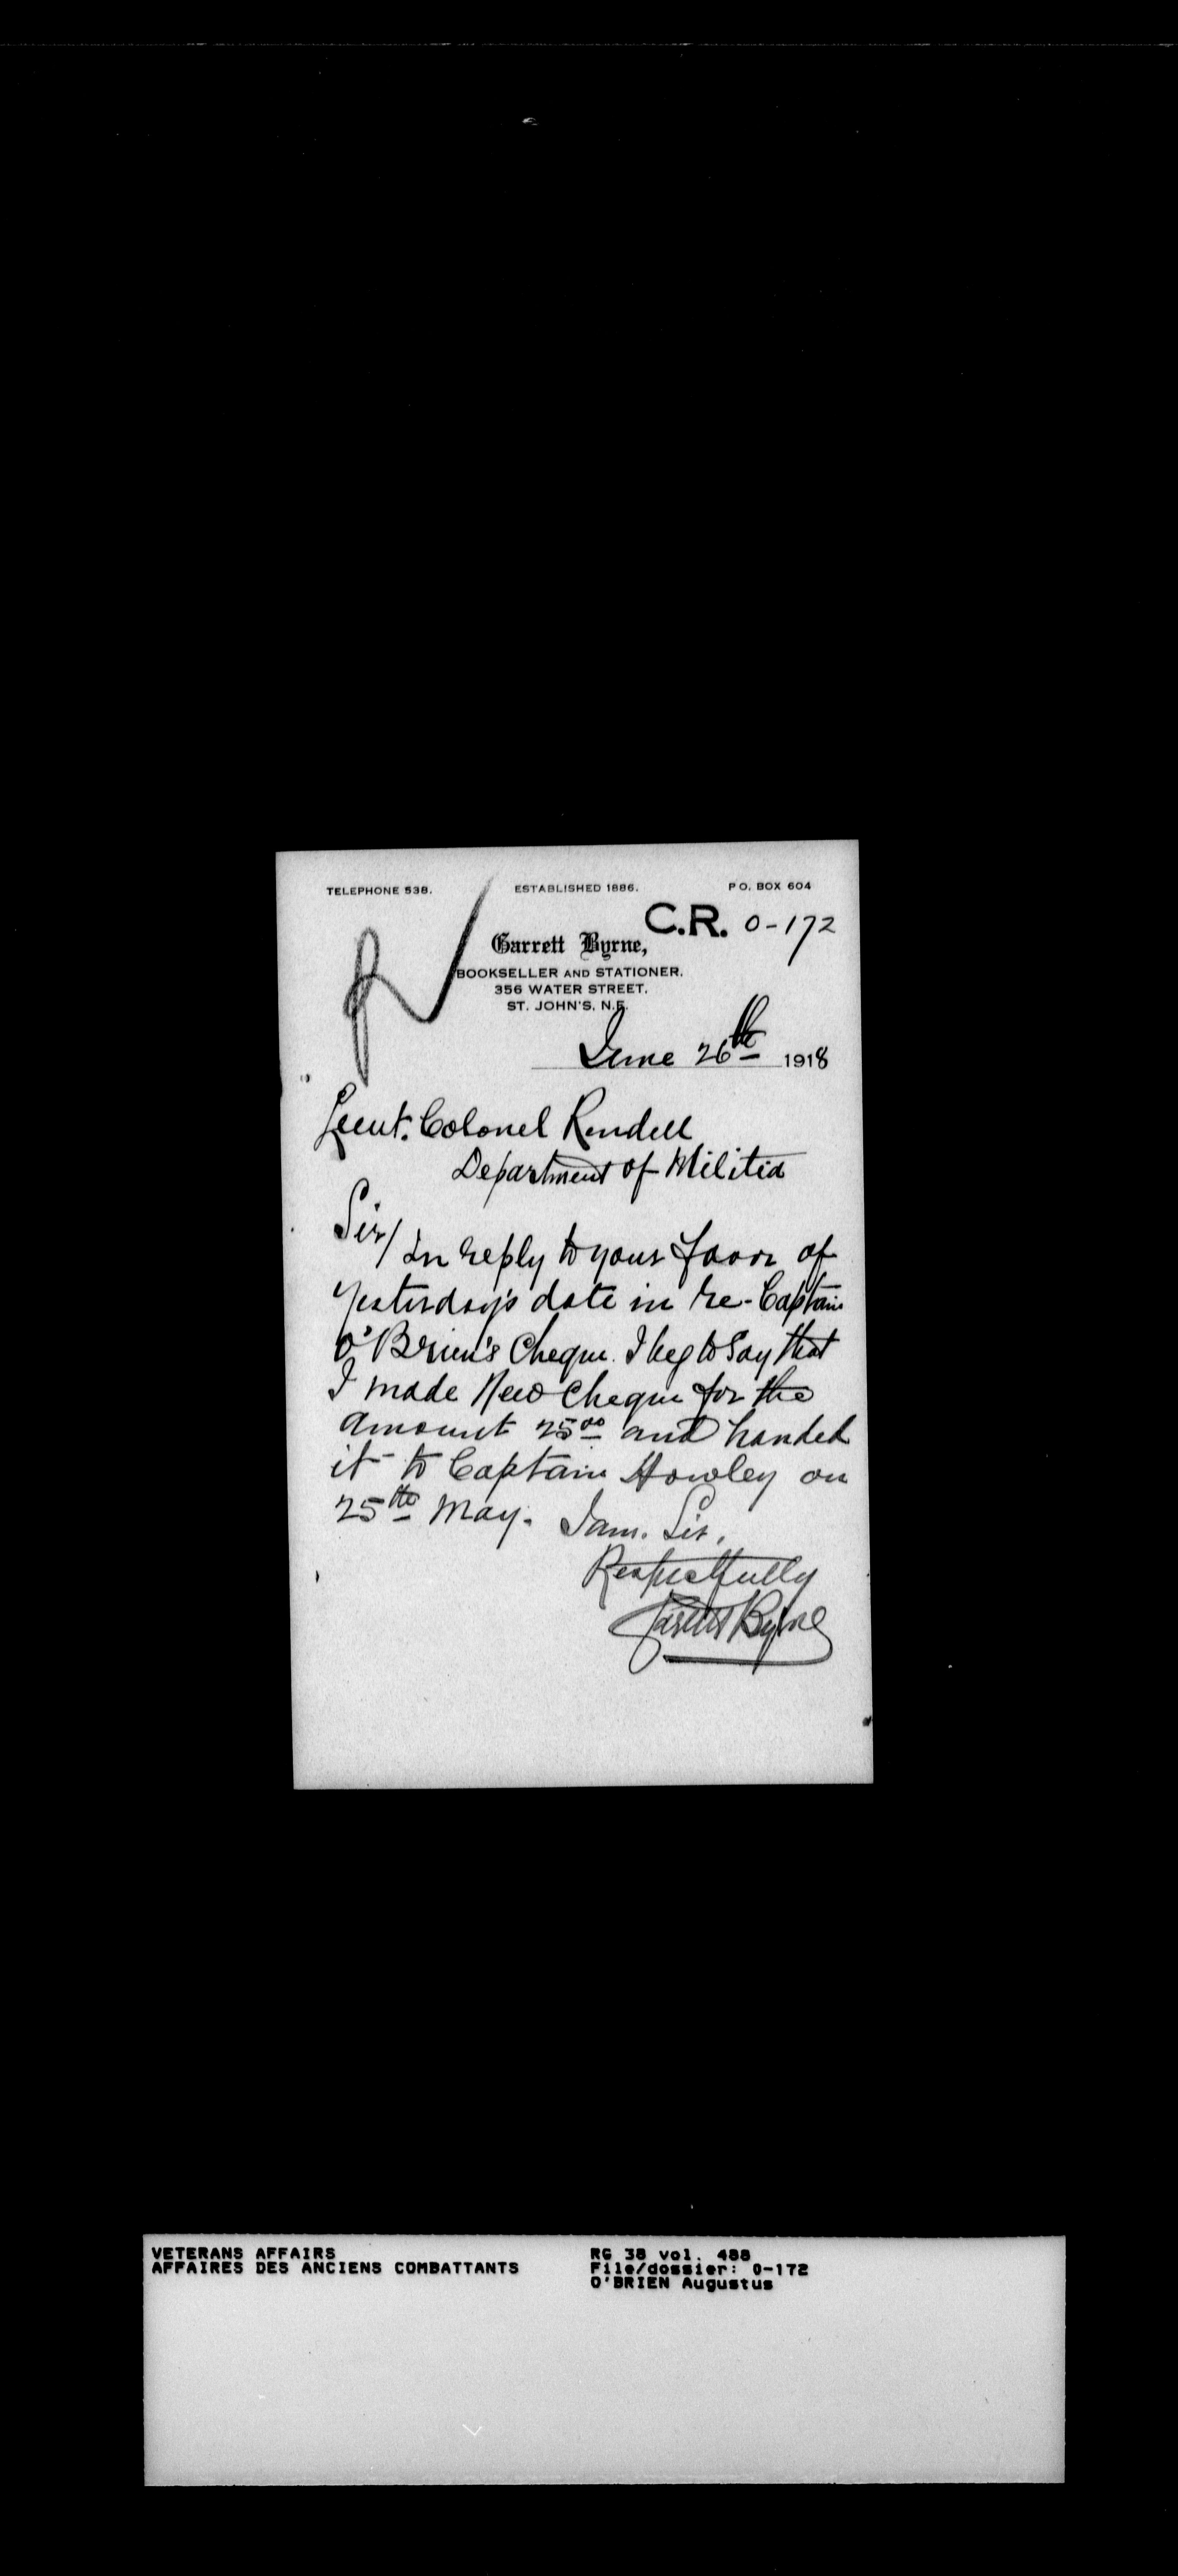 TELEPHONE 538. ESTABLISHED 1886. P.O. BOX 604
C.R. 0-172
Garrett Byrne,
BOOKSELLER AND STATIONER.
356 WATER STREET.
ST. JOHN'S, N.F.
June 26th 1918
Lieut. Colonel Rendell
Department of Militia
Sir/
In reply to your favor of
yesterday's date in re-Captain
O'Brien's Cheque. I beg to say that
I made New Cheque for the
amount 25.00 and handed
it to Captain Howley on
25th May. I am. Sir,
Respectfully
Garrett Byrne
VETERANS AFFAIRS
AFFAIRES DES ANCIENS COMBATTANTS
RG 38 vol. 488
File/dossier: 0-172
O'BRIEN Augustus